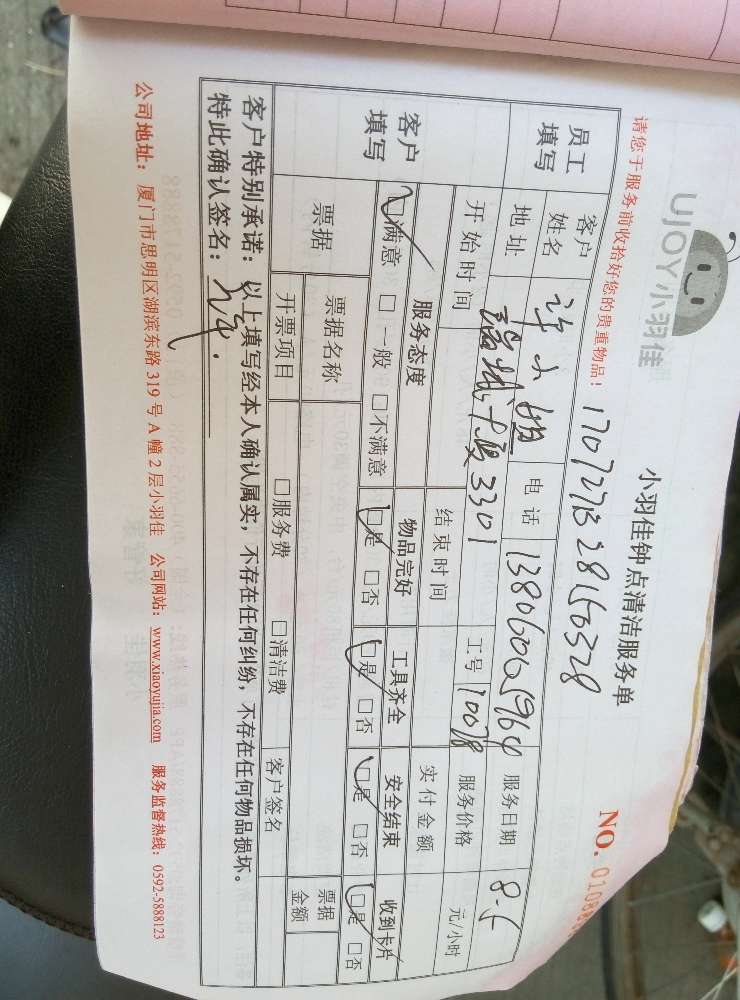 UJOY小羽佳
小羽佳钟点清洁服务单
NO. 01088
请您于服务前收拾好您的贵重物品！
员工填写
客户姓名 许小姐 电话 服务日期 8-5
地址 3301 工号 10078 服务价格 元/小时
开始时间 结束时间 实付金额
客户填写
服务态度 物品完好 工具齐全 安全结束 收到卡片
□满意 □一般 □不满意 □是 □否 □是 □否 □是 □否 □是 □否
票据 票据名称 □服务费 □清洁费 客户签名 票据金额
开票项目
客户特别承诺：以上填写经本人确认属实，不存在任何纠纷，不存在任何物品损坏。
特此确认签名：
公司地址：厦门市思明区湖滨东路 319 号 A 幢 2 层小羽佳 公司网站：www.xiaoyujia.com 服务监督热线：0592-5888123